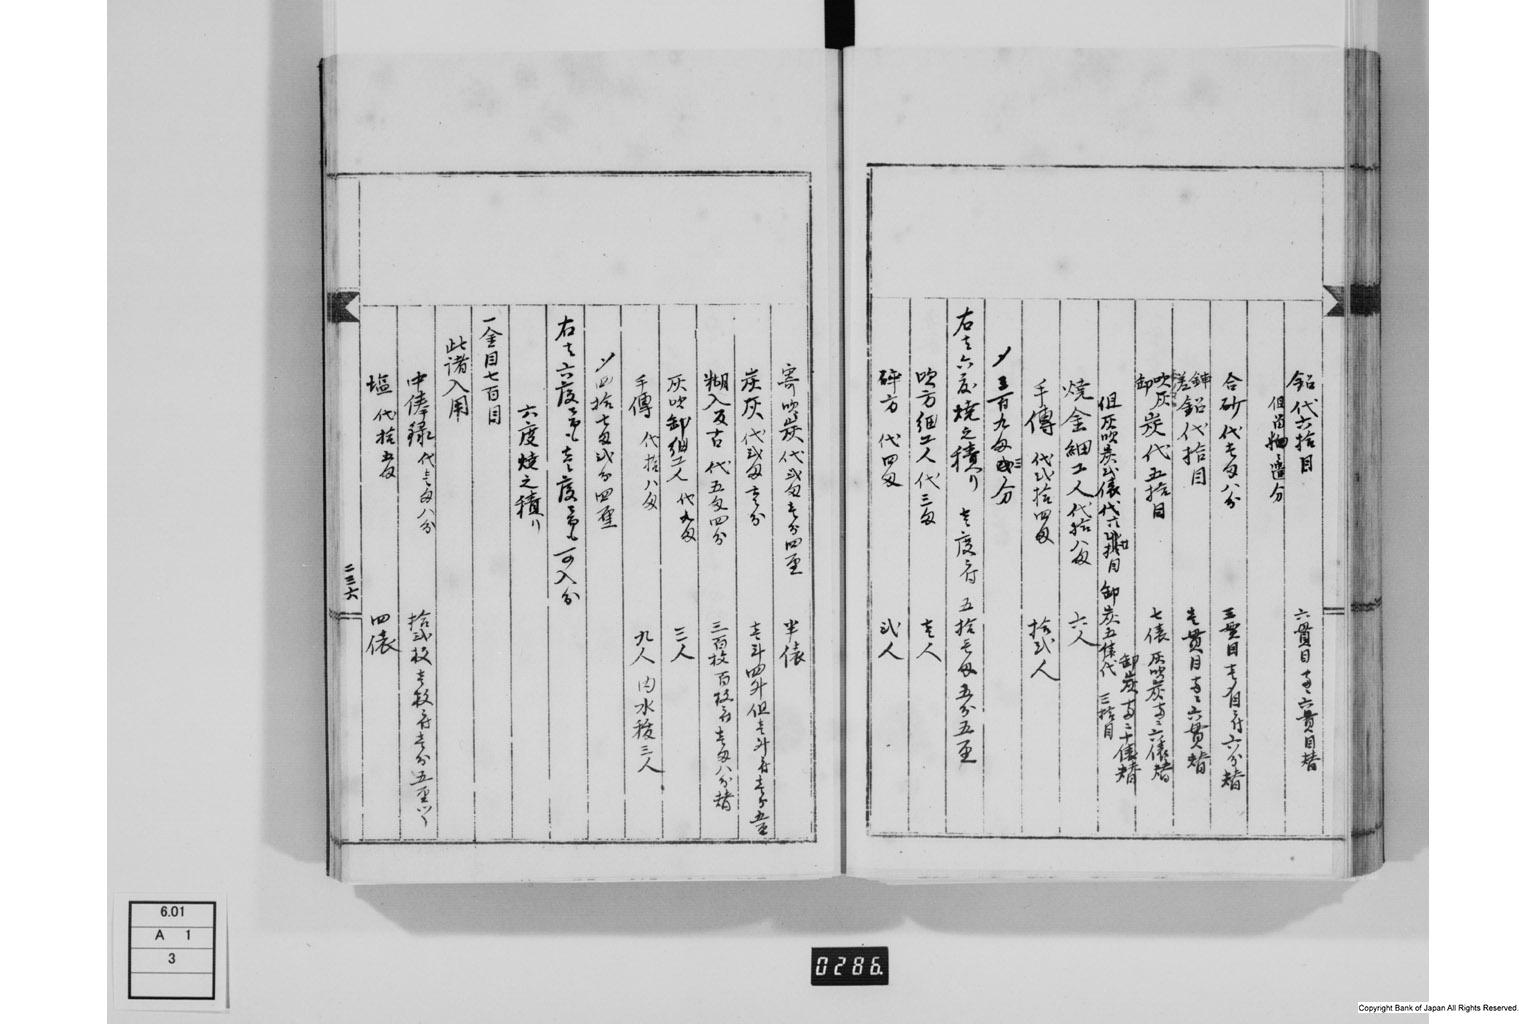 鉛代六拾目　六貫目
合砂　代壱匁八分　三貫目
鉛代拾目　壱貫目
吹灰 卸 炭代五拾目　七俵　灰吹炭　卸炭
但灰吹炭　俵代　卸炭五俵代　三拾目
焼金細工人代拾八匁　六人
手傳　代弐拾四匁　拾弐人
〆三百九匁　分
右者六度焼之積り　壱度ニ付　五拾壱匁五分五厘
吹方細工人代三匁　壱人
砕方　代四匁　弐人
寄吹炭代弐匁壱分四厘　半俵
炭灰代弐匁壱分　壱斗四升但壱斗ニ付壱分五厘
糊入反古　代五匁四分　三百枚百枚ニ付壱匁八分替
灰吹卸細工人　代九匁　三人
手傳　代拾八匁　九人　内水役三人
〆四拾七匁弐分四厘
右者六度ニ而も壱度ニ而も可入分
六度焼之積り
一金目七百目
此諸入用
中俸録　代壱匁八分　拾弐枚壱枚ニ付壱分五厘ツヽ
塩　代拾五匁　四俵
二三六
6.01
A 1
3
0286.
Copyright Bank of Japan All Rights Reserved.